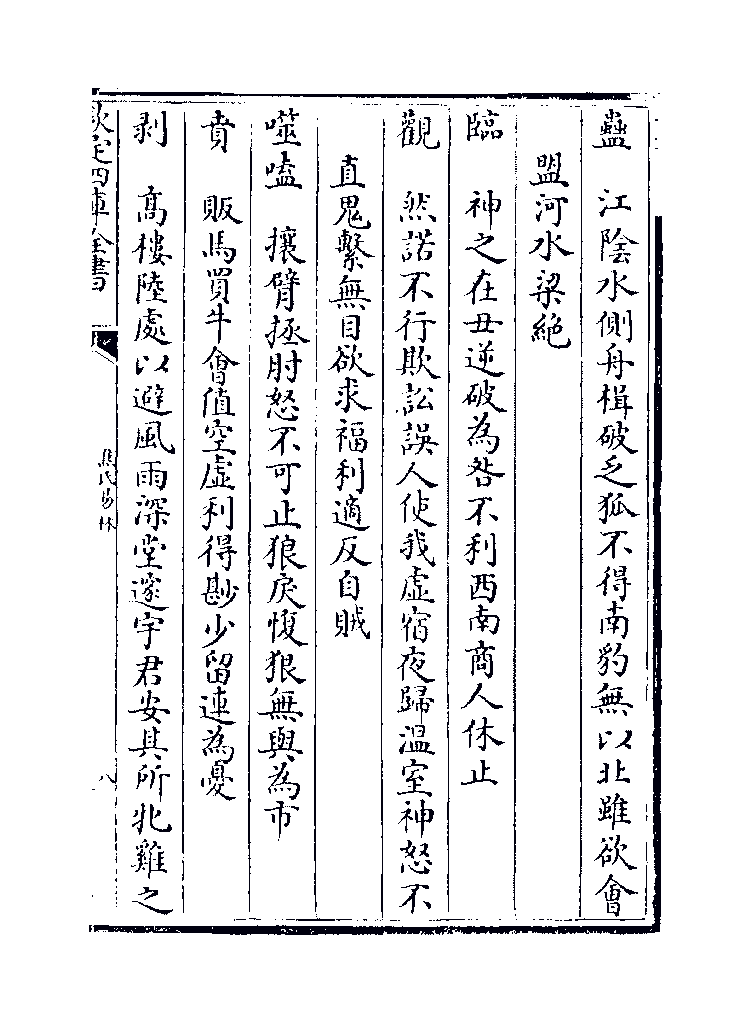 蠱　江陰水側舟楫破乏狐不得南豹無以北雖欲會
盟河水梁絶
臨　神之在丑逆破為咎不利西南商人休止
觀　然諾不行欺訟誤人使我虚宿夜歸温室神怒不
直鬼繫無目欲求福利適反自賊
噬嗑　攘臂拯肘怒不可止狼戾愎狠無與為市
賁　販馬買牛會值空虚利得尠少留連為憂
剥　髙樓陸處以避風雨深堂邃宇君安其所牝雞之
欽定四庫全書
焦氏易林
八